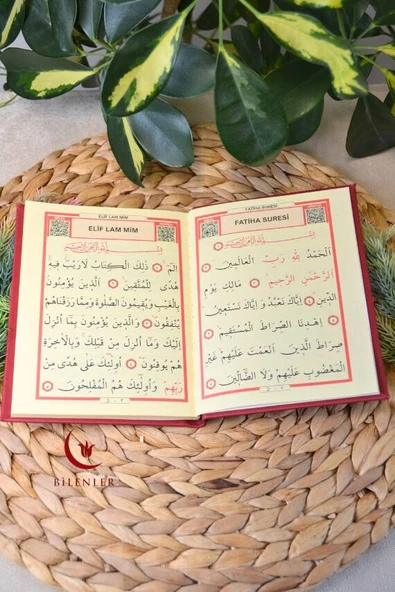 FATİHA SURESİ
FATİHA SURESİ
اَلْحَمْدُ لِلّٰهِ رَبِّ الْعَالَمِينَ
اَلرَّحْمٰنِ الرَّحِيمِ مَالِكِ يَوْمِ
الدِّينِ اِيَّاكَ نَعْبُدُ وَاِيَّاكَ نَسْتَعِينُ
اِهْدِنَا الصِّرَاطَ الْمُسْتَقِيمَ
صِرَاطَ الَّذِينَ اَنْعَمْتَ عَلَيْهِمْ غَيْرِ
الْمَغْضُوبِ عَلَيْهِمْ وَلَا الضَّالِّينَ
ELİF LAM MİM
ELİF LAM MİM
الٓمٓ ذٰلِكَ الْكِتَابُ لَا رَيْبَ فِيهِ
هُدًى لِلْمُتَّقِينَ اَلَّذِينَ يُؤْمِنُونَ
بِالْغَيْبِ وَيُقِيمُونَ الصَّلٰوةَ وَمِمَّا رَزَقْنَاهُمْ
يُنْفِقُونَ وَالَّذِينَ يُؤْمِنُونَ بِمَا اُنْزِلَ
اِلَيْكَ وَمَا اُنْزِلَ مِنْ قَبْلِكَ وَبِالْاٰخِرَةِ
هُمْ يُوقِنُونَ اُولٰٓئِكَ عَلٰى هُدًى مِنْ
رَبِّهِمْ وَاُولٰٓئِكَ هُمُ الْمُفْلِحُونَ
BİLENLER